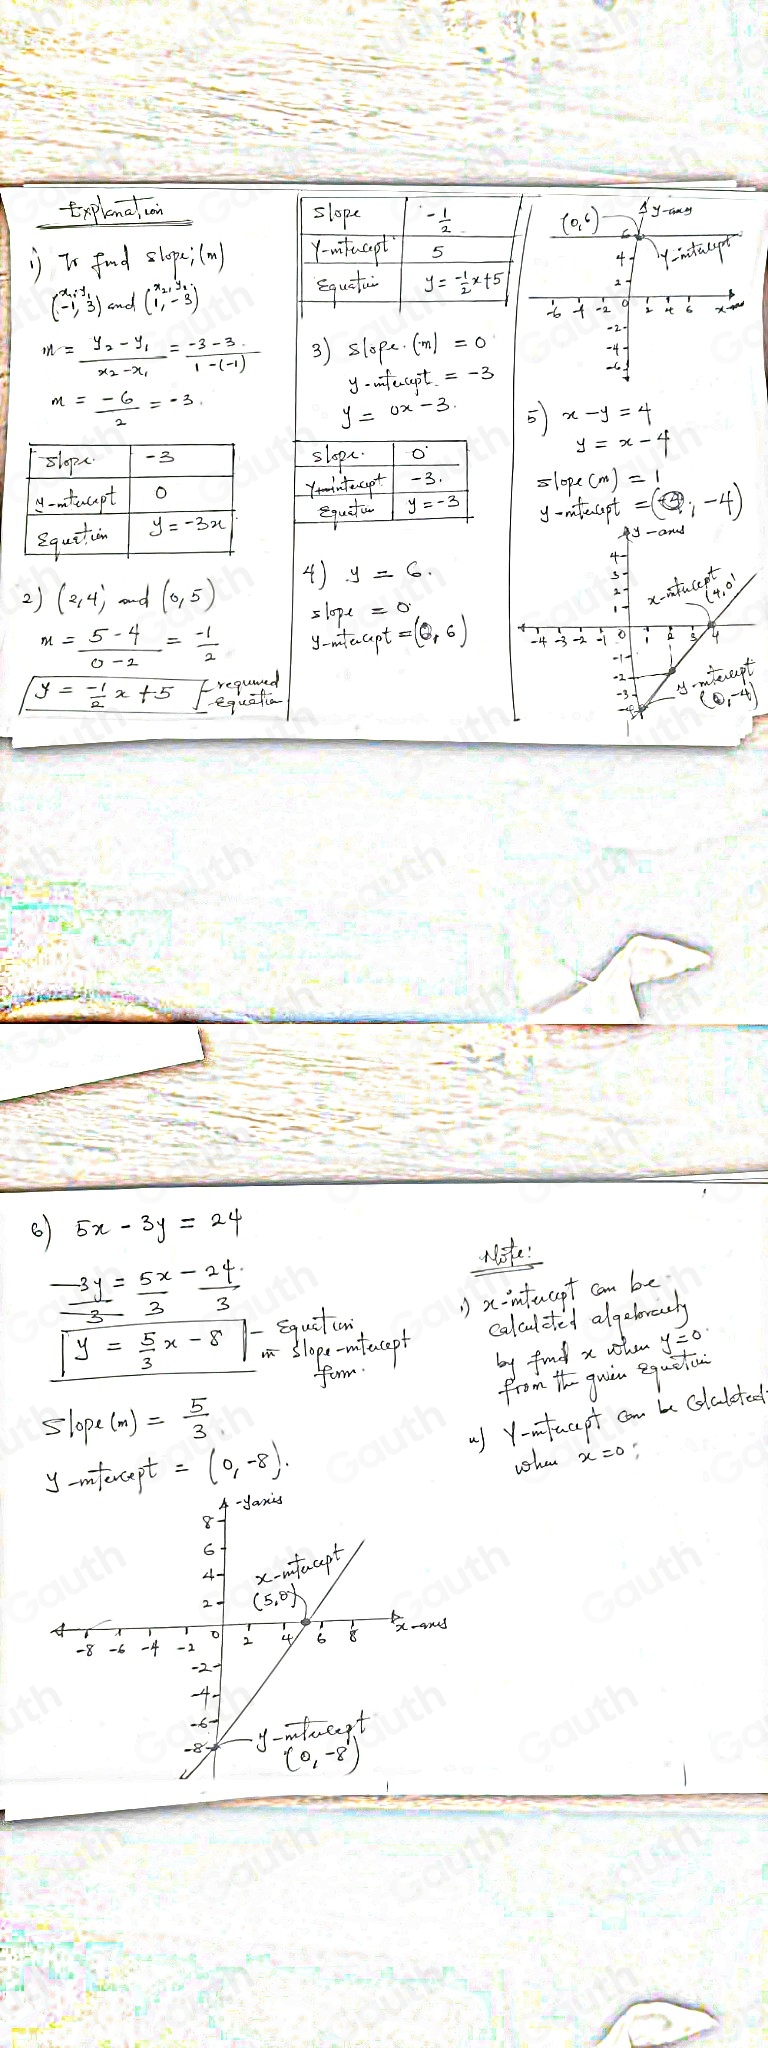 Explanation
i) To find slope; (m)
x₁, y₁ x₂, y₂
(-1, 3) and (1, -3)
m = y₂ - y₁ / x₂ - x₁ = -3 - 3 / 1 - (-1)
m = -6/2 = -3.
slope -3
y-intercept 0
Equation y = -3x
2) (2,4) and (0,5)
m = 5 - 4 / 0 - 2 = -1/2
y = -1/2 x + 5 required Equation
slope -1/2
Y-intercept 5
Equation y = -1/2 x + 5
3) slope (m) = 0
y-intercept = -3
y = 0x - 3.
slope 0
Y-intercept -3.
Equation y = -3
4) y = 6.
slope = 0
y-intercept = (0, 6)
(0,6) y-axis
6 y-intercept
4
2
-6 -4 -2 0 2 4 6
-2
-4
-6
5) x - y = 4
y = x - 4
slope (m) = 1
y-intercept = ( , -4)
y-axis
4
3
2 x-intercept
1 (4,0)
-4 -3 -2 -1 0 1 2 3 4
-1
-2 y-intercept
-3 (0,-4)
6) 5x - 3y = 24
-3y/3 = 5x/3 - 24/3
y = 5/3 x - 8 - Equation
in slope-intercept
form.
slope (m) = 5/3.
y-intercept = (0, -8).
-y axis
8
6
4 x-intercept
2 (5,0)
-8 -6 -4 -2 0 2 4 6 8 x-axis
-2
-4
-6
-8 y-intercept
(0, -8)
Note:
i) x-intercept can be
calculated algebraically
by find x when y=0
from the given equation
ii) Y-intercept can be calculated
when x=0;
Gauth